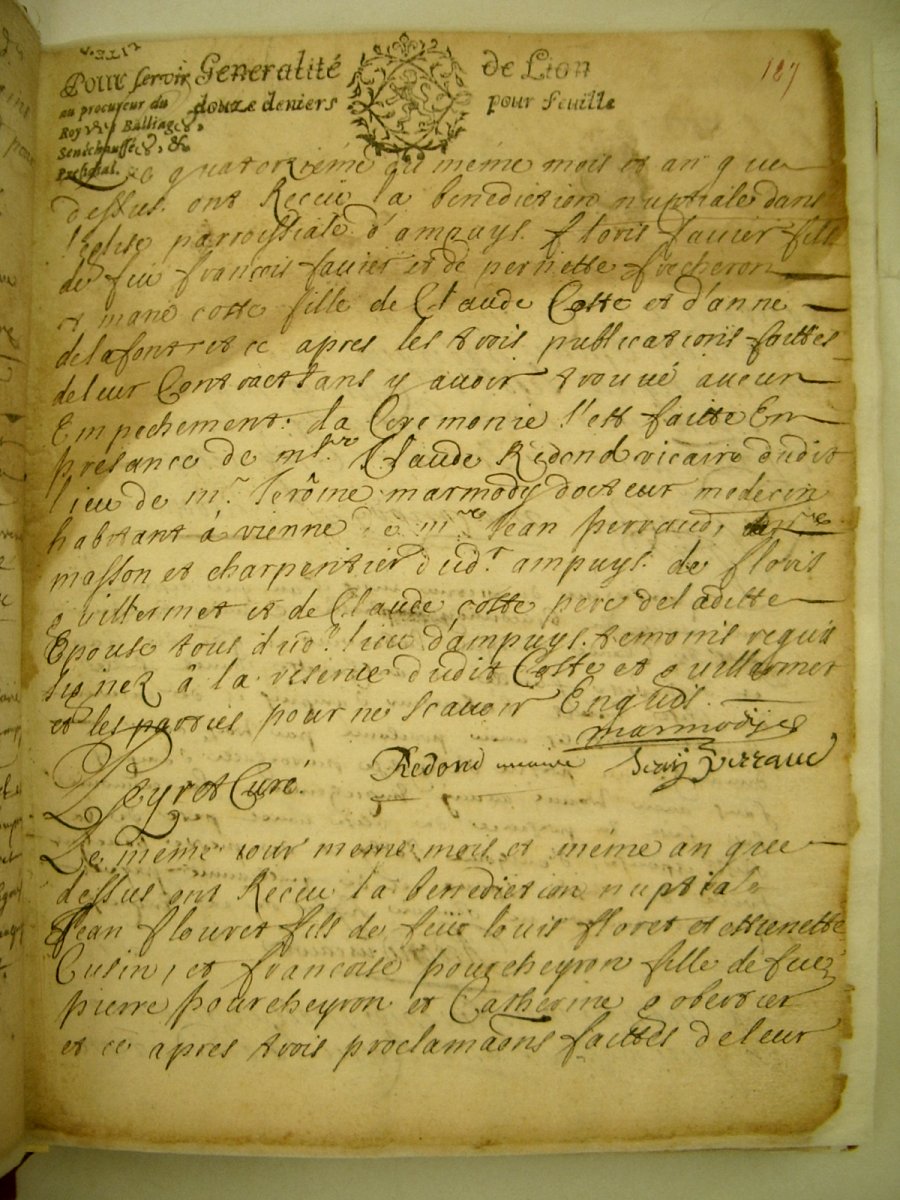 187
Pour servir Generalité de Lion
au procureur du douze deniers pour feuille
Roy Balliage,
Senéchaussée, &
Presidial.
Le quatorzième du méme mois et an que
dessus ont Receu la benediction nuptiale dans
l'eglise parroissiale d'ampuys. floris favier fils
de feu françois favier et de pernette frecheron
et marie coste fille de Claude Coste et d'anne
delafont et ce apres les trois publications faittes
deleur Contract sans y avoir trouué aucun
Empechement. la Ceremonie s'est faitte En
presance de Claude Redond vicaire dudit
lieu de mr. Jerôme marmody docteur medecin
habitant à vienne de me Jean perraud,
masson et charpentier dudt. ampuys. de floris
guillermet et de Claude coste pere deladitte
Epouse tous dudt. lieu d'ampuys. temoins requis
signez â la reserve dudit Coste et guillermet
et les parties pour ne scavoir Enquis.
marmodij
Redond vicaire Jean perraud
Peyrot Curé.
Le méme iour meme mois et méme an que
dessus ont Receu la benediction nuptiale
Jean flouret fils de feu louis floret et ettienette
Cusin, et françoise pourcheyron fille de feu
pierre pourcheyron et Catherine gobertier
et ce apres trois proclamaons faittes deleur